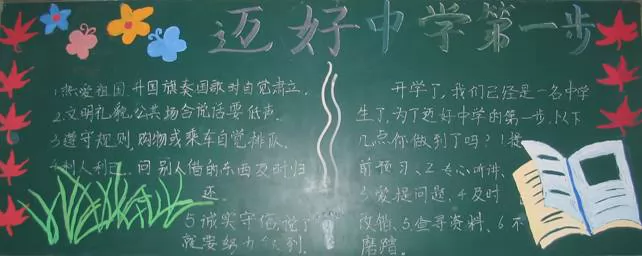 迈好中学第一步
1.热爱祖国,升国旗奏国歌时自觉肃立.
2.文明礼貌,公共场合说话要低声.
3遵守规则,购物或乘车自觉排队.
4利人利己.问别人借的东西及时归
还.
5诚实守信,说了
就要努力做到.
开学了,我们已经是一名中学
生了,为了迈好中学的第一步.以下
几点你做到了吗?1提
前预习、2专心听讲、
3爱提问题、4及时
改错、5查寻资料、6不
磨蹭.